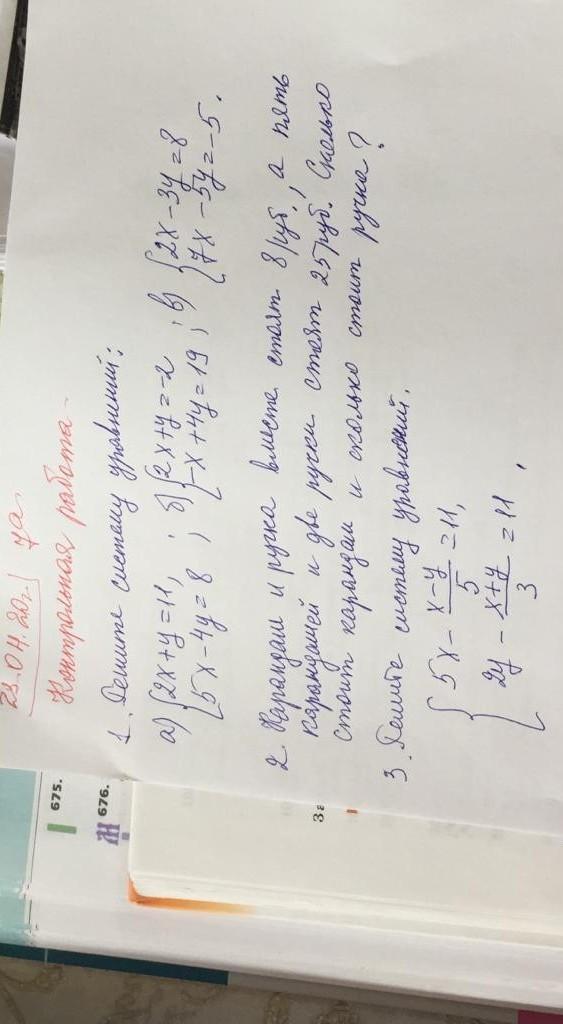 23.04.20г. 7а.
Контрольная работа.
1. Решите систему уравнений:
а) {2x+y=11, ; б) {2x+y=-2 ; в) {2x-3y=8
{5x-4y=8 {-x+4y=19 {7x-5y=-5.
2. Карандаш и ручка вместе стоят 8 руб., а пять
карандашей и две ручки стоят 25 руб. Сколько
стоит карандаш и сколько стоит ручка?
3. Решите систему уравнений.
{ 5x - (x-y)/5 = 11,
{ 2y - (x+y)/3 = 11.
675.
676.
За